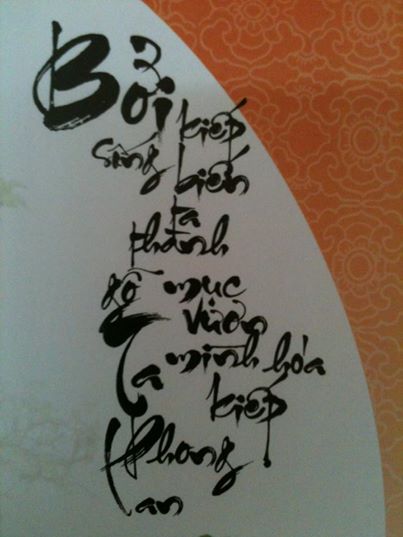 Bởi kiếp
sống biến
ta
thành
gỗ mục
vươn
Ta mình hóa
kiếp
Phong
lan